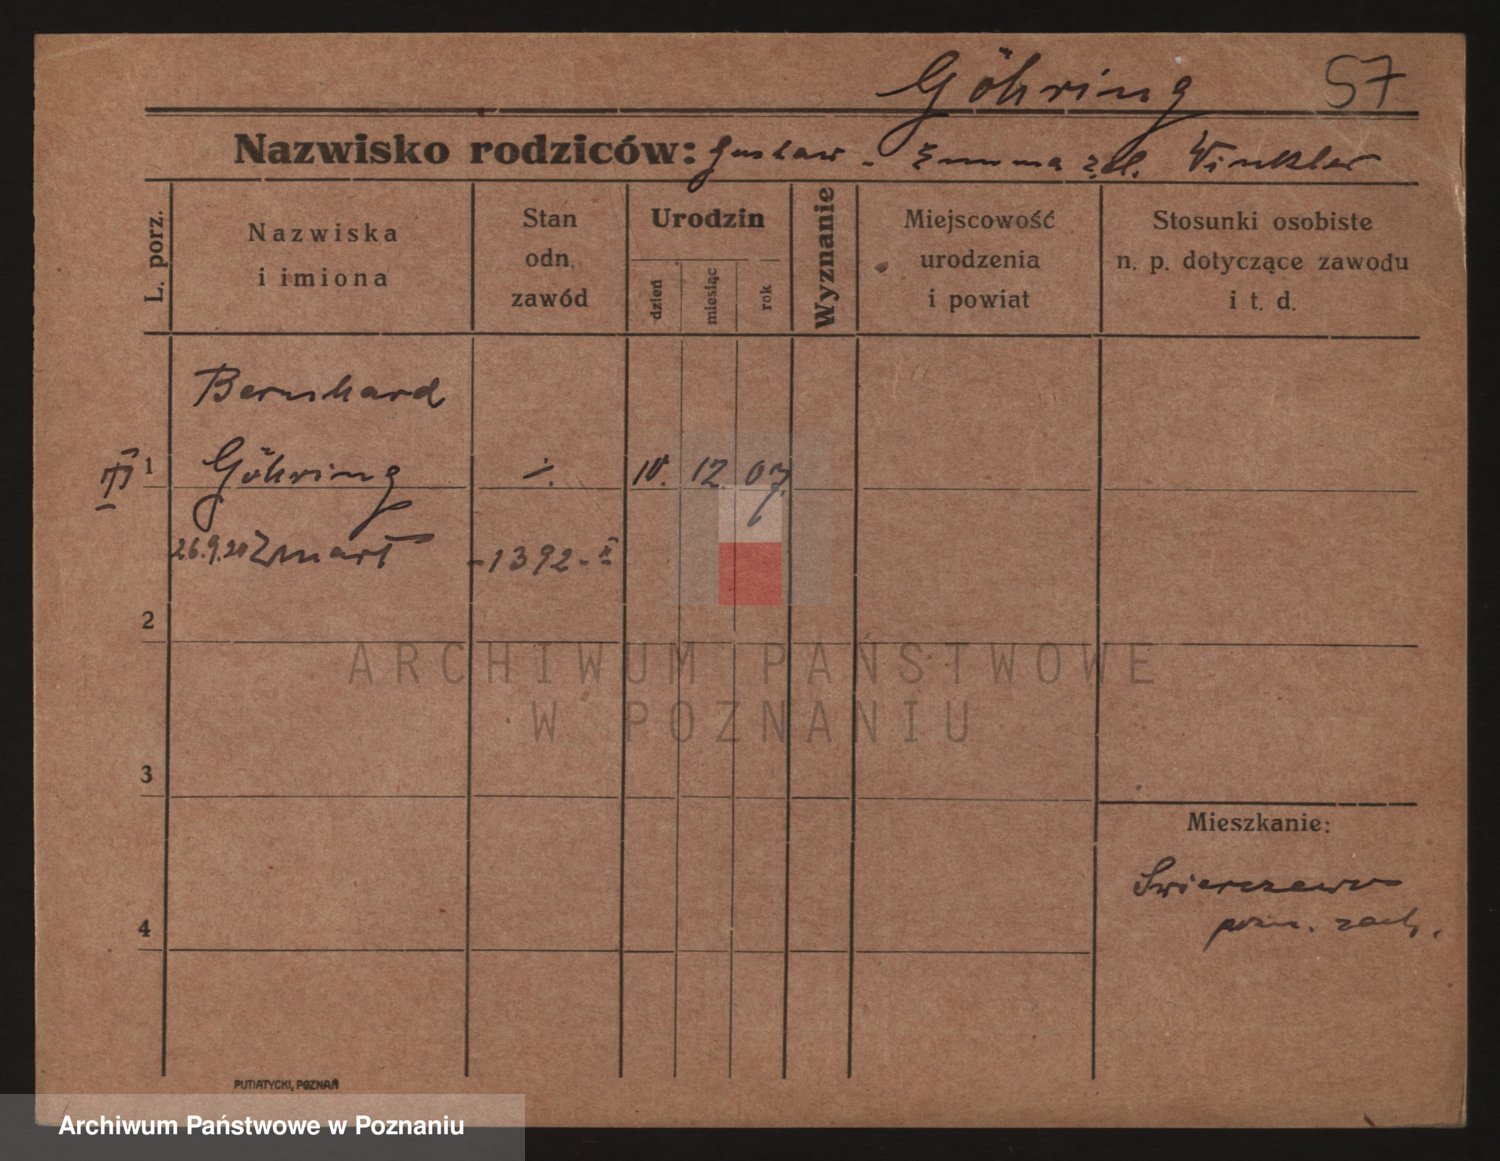 Göhring 57
Nazwisko rodziców: Gustaw - Emma z d. Winkler
L. porz.
Nazwiska
i imiona
Stan
odn.
zawód
Urodzin
dzień
miesiąc
rok
Wyznanie
Miejscowość
urodzenia
i powiat
Stosunki osobiste
n. p. dotyczące zawodu
i t. d.
Bernhard
1 Göhring ÷ 10. 12. 07.
26.9.20 Zmarł - 1392 - II
2
ARCHIWUM PAŃSTWOWE
W POZNANIU
3
Mieszkanie:
Swierczewo
pozn. zach.
4
PUTIATYCKI, POZNAŃ
Archiwum Państwowe w Poznaniu